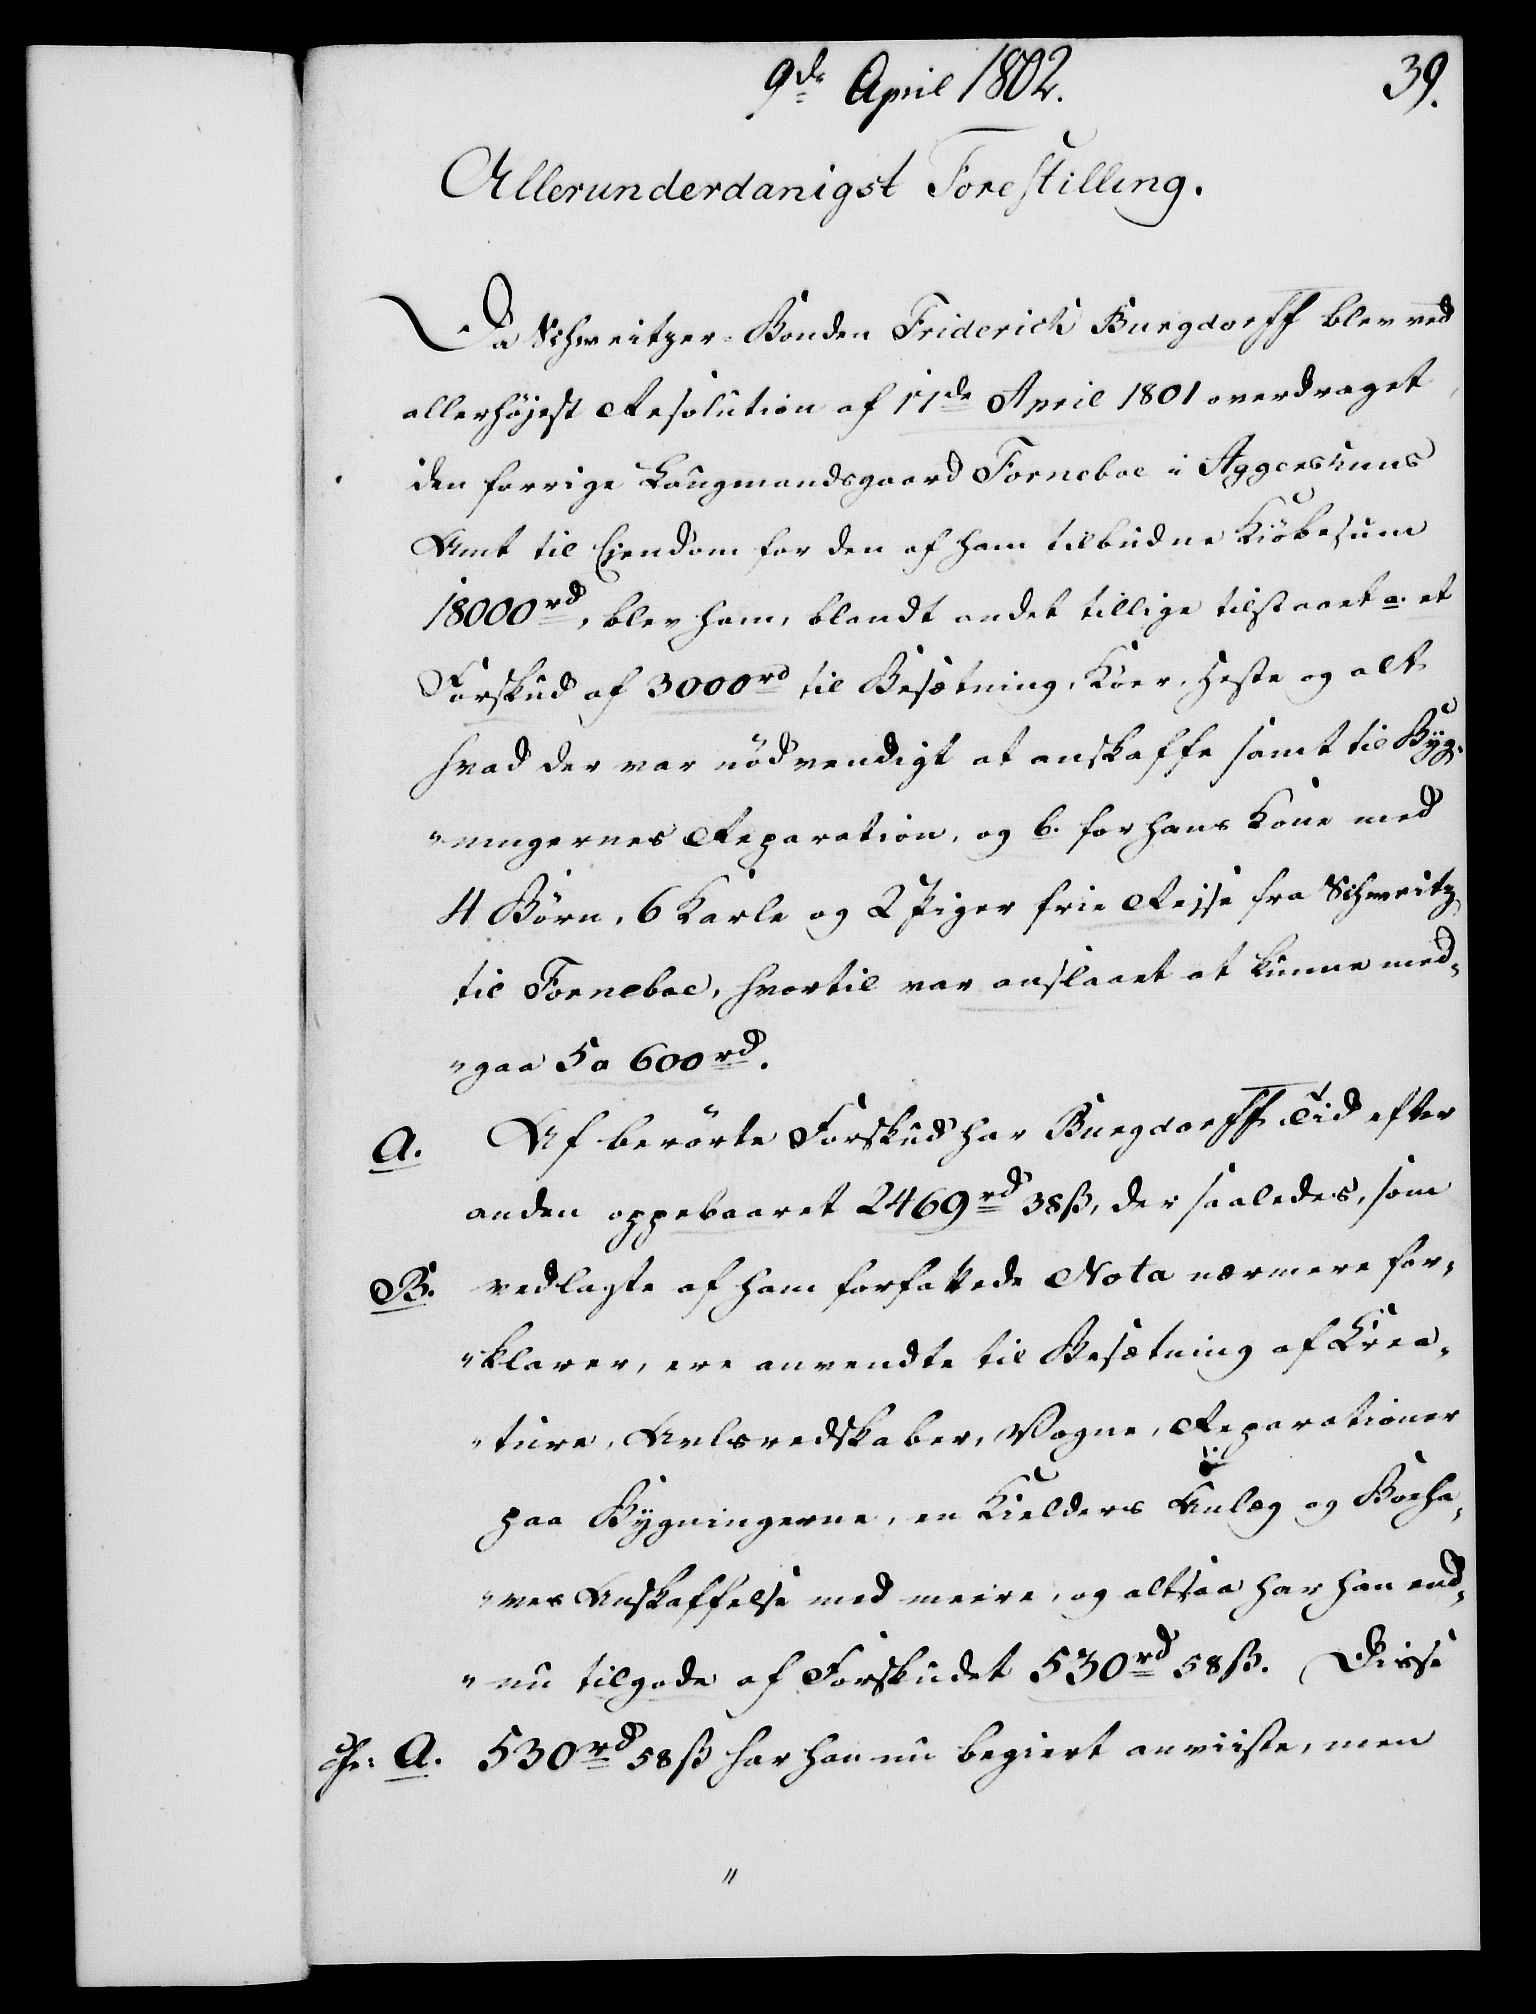 9de April 1802.
39.
Allerunderdanigst Forestilling.
Da Schweitzer-Bonden Friderich Burgdorff blev ved
allerhöjest Resolution af 11de April 1801 overdraget
den forrige Laugmandsgaard Forneboe i Aggershuus
Amt til Eiendom for den af ham tilbudne Kiöbesum
18000rd, blev ham, blandt andet tillige tilstaaet a. et
Forskud af 3000rd til Besætning, Köer, Heste og alt
hvad der var nödvendigt at anskaffe samt til Byg-
"ningernes Reparation, og b. for hans Kone med
4 Börn, 6 Karle og 2 Piger frie Rejse fra Schweitz
til Forneboe, hvortil var anslaaet at kunne med-
"gaa 5 a 600rd.
A. Af berörte Forskud har Burgdorff Tid efter
anden oppebaaret 2469rd 38ß, der saaledes, som
B. vedlagte af ham forfattede Nota nærmere for-
"klarer, ere anvendte til Besætning af Krea-
"ture, Avlsredskaber, Vogne, Reparationer
paa Bygningerne, en Kielders Anlæg og Boeha-
"ves Anskaffelse med meere, og altsaa har han end-
"nu tilgode af Forskudet 530rd 58ß. Disse
A. 530rd 58ß har han nu begiert anviiste, men
"